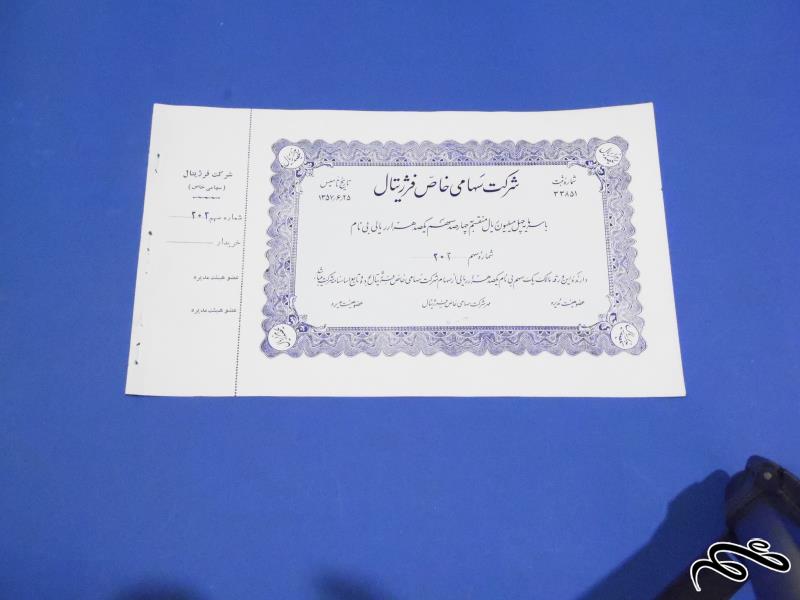 شماره ثبت
۳۳۸۵۱
شرکت سهامی خاص فرژیتال
تاریخ تاسیس
۱۳۵۷/۶/۲۵
با سرمایه چهل میلیون ریال منقسم به چهارصد سهم یکصد هزار ریالی بی نام
شماره سهم ۲۰۲
دارنده این ورقه مالک یک سهم بی نام یکصد هزار ریالی از سهام شرکت سهامی خاص فرژیتال بوده و تابع اساسنامه شرکت میباشد
عضو هیئت مدیره
مهر شرکت سهامی خاص فرژیتال
عضو هیئت مدیره
شرکت فرژیتال
(سهامی خاص)
شماره سهم ۲۰۲
خریدار
عضو هیئت مدیره
عضو هیئت مدیره